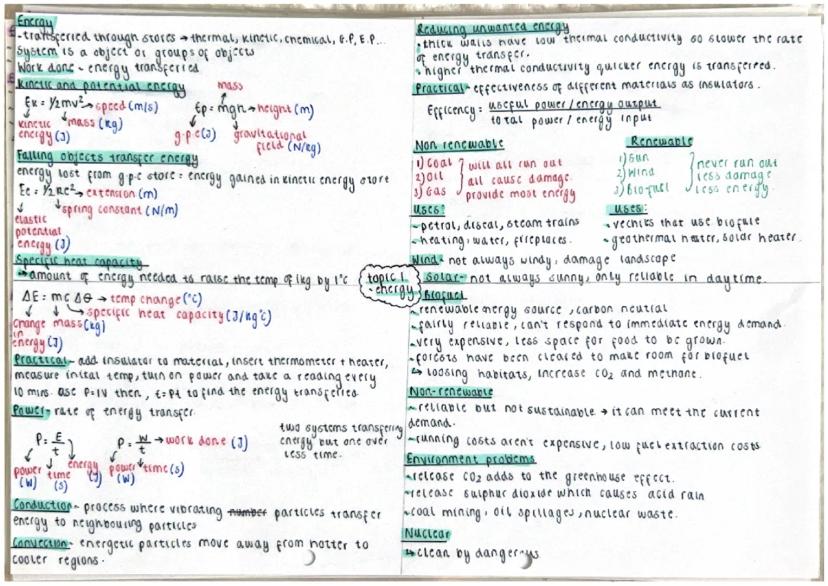 Energy
- transferred through stores → thermal, kinetic, chemical, G.P, E.P...
System is a object or groups of objects
Work done - energy transferred
Kinetic and potential energy
mass
Ek = ½mv² → speed (m/s)
Ep = mgh → height (m)
kinetic energy (J)
mass (kg)
g.p.e (J)
gravitational field (N/kg)
Falling objects transfer energy
energy lost from g.p.e store = energy gained in kinetic energy store
Ee = ½Ke² → extension (m)
spring constant (N/m)
elastic
potential
energy (J)
Specific heat capacity
→ amount of energy needed to raise the temp of 1kg by 1°C
ΔE = mcΔθ → temp change (°C)
specific heat capacity (J/kg°C)
change in energy (J)
mass (kg)
Practical - add insulator to material, insert thermometer + heater,
measure inital temp, turn on power and take a reading every
10 mins. use P=IV then, E=Pt to find the energy transferred
Power - rate of energy transfer.
P = E/t
P = W/t → work done (J)
power (W)
time (s)
energy (J)
power (W)
time (s)
two systems transfering
energy but one over
less time.
Conduction - process where vibrating number particles transfer
energy to neighbouring particles
Convection - energetic particles move away from hotter to
cooler regions.
topic 1
- energy
Reducing unwanted energy
- thick walls have low thermal conductivity so slower the rate
of energy transfer.
- higher thermal conductivity quicker energy is transferred.
Practical - effectiveness of different materials as insulators.
Efficency: useful power / energy output
total power / energy input
Non renewable
1) Coal
2) Oil
3) Gas
will all run out
all cause damage
provide most energy
Renewable
1) Sun
2) Wind
3) Biofuel
never run out
less damage
less energy.
Uses:
- petrol, diseal, steam trains
- heating, water, fireplaces.
Uses:
- vechiks that use biofule
- geothermal heater, solar heater.
Wind - not always windy, damage landscape
Solar - not always sunny, only reliable in daytime.
Biofuel
- renewable energy source, carbon neutral
- fairly reliable, can't respond to immediate energy demand.
- very expensive, less space for food to be grown.
- forests have been cleared to make room for biofuel
↳ loosing habitats, increase CO₂ and methane.
Non-renewable
- reliable but not sustainable → it can meet the current
demand.
- running costs aren't expensive, low fuel extraction costs
Environment problems
- release CO₂ adds to the greenhouse effect.
- release sulphur dioxide which causes acid rain
- coal mining, oil spillages, nuclear waste.
Nuclear
↳ clean by dangerous